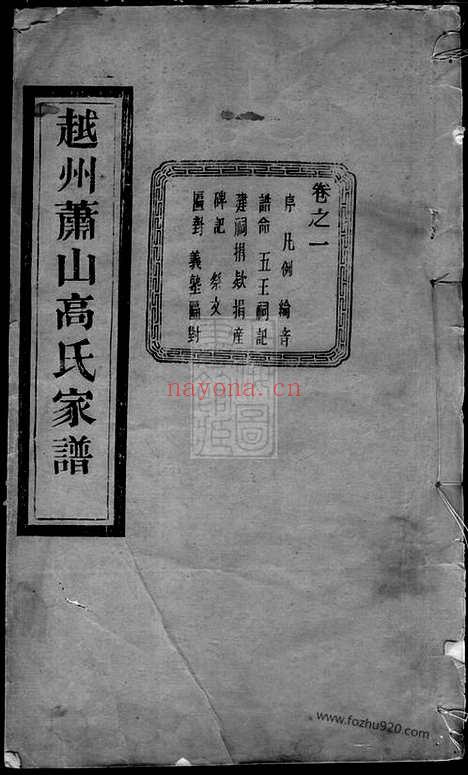 越州蕭山高氏家譜
卷之一
序 凡例 綸音
誥命 五王祠記
建祠捐欵捐産
碑記 祭文
匾對 義塾匾對
nayona.cn
www.fozhu920.com